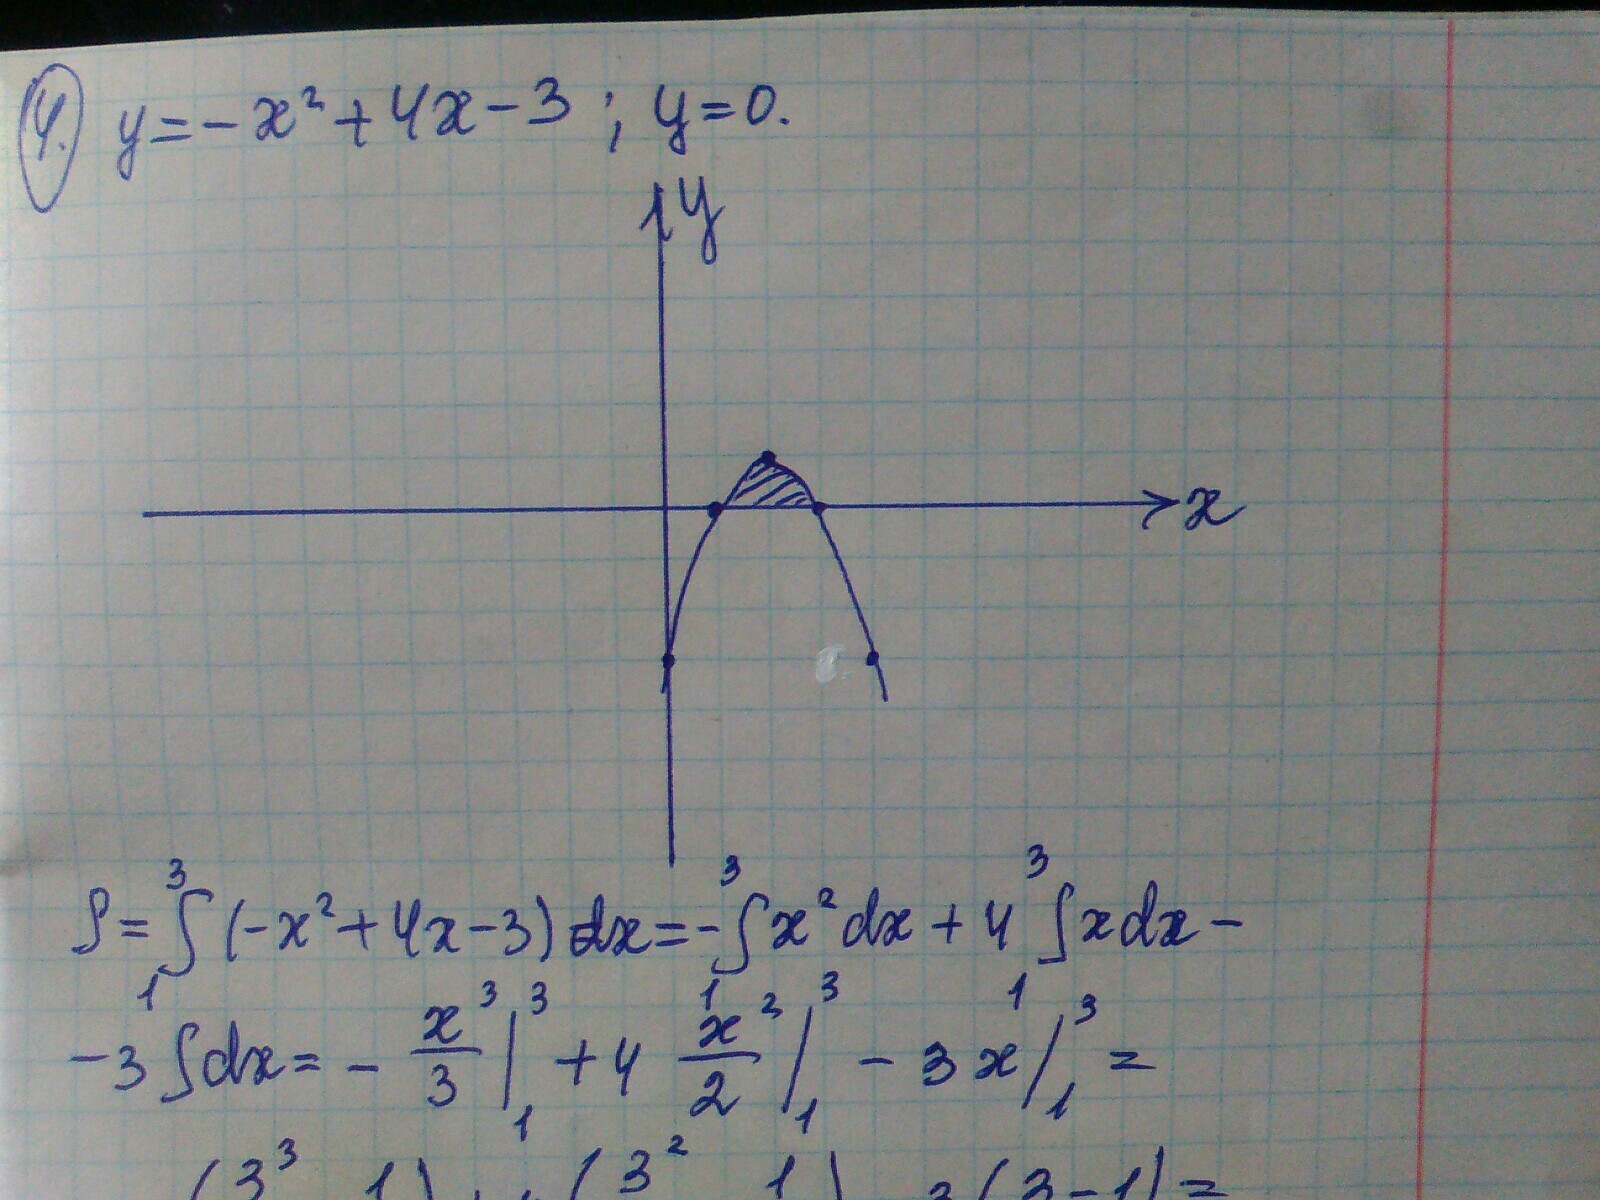 4. y=-x²+4x-3; y=0.
y
x
S=∫₁³(-x²+4x-3)dx=-∫₁³x²dx+4∫₁³xdx-
-3∫dx=-x³/3|₁³+4x²/2|₁³-3x|₁³=
(3³ 1) (3² 1) 3(3-1)=